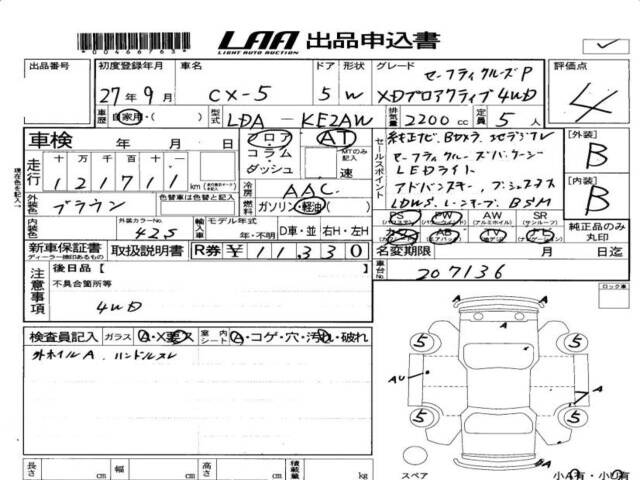 *00466763*
LAA 出品申込書
LIGHT AUTO AUCTION
出品番号 初度登録年月 車名 ドア 形状 グレード 評価点
セーフティクルーズP
27年9月 CX-5 5 W XDプロアクティブ 4WD 4
車歴 自家用・( ) 型式 LDA - KE2AW 排気量 2200cc 定員 5人
車検 年 月 日
フロア・コラム・ダッシュ AT MTのみ記入 速
セールスポイント
純正ナビ、Bカメラ、地デジTV
セーフティクルーズパッケージ
LEDライト
アドバンスキー、プッシュスタート
LDWS、レーンキープ、BSM
【外装】 B
【内装】 B
現在のを記入→
走行 十 万 千 百 十 一
121711 km
冷房 AAC
燃料 ガソリン・軽油・( )
外装色 ブラウン 色替車は色替と記入
内装色 外装カラーNo. 42S
輸入車 モデル年式 年・不明 D車・並 右H・左H
PS AW SR
(パワステ) (パワーウインド) (アルミホイール) (サンルーフ)
AB TV ナビ
(エアバッグ) (テレビ)
純正品のみ丸印
新車保証書 ディーラー捺印あるもの 取扱説明書 R券 ¥11,330
名変期限 月 日迄
車台No 207136
注意事項
後日品【 】
不具合箇所等
4WD
ロック車
検査員記入 ガラス A・X要ス 室内シート A・コゲ・穴・汚れ・破れ
外ホイルA ハンドルスレ
A
5 5
AU A
5 5
BA
長さ cm 幅 cm 高さ cm 積載量 kg
スペア 小A有・小U有